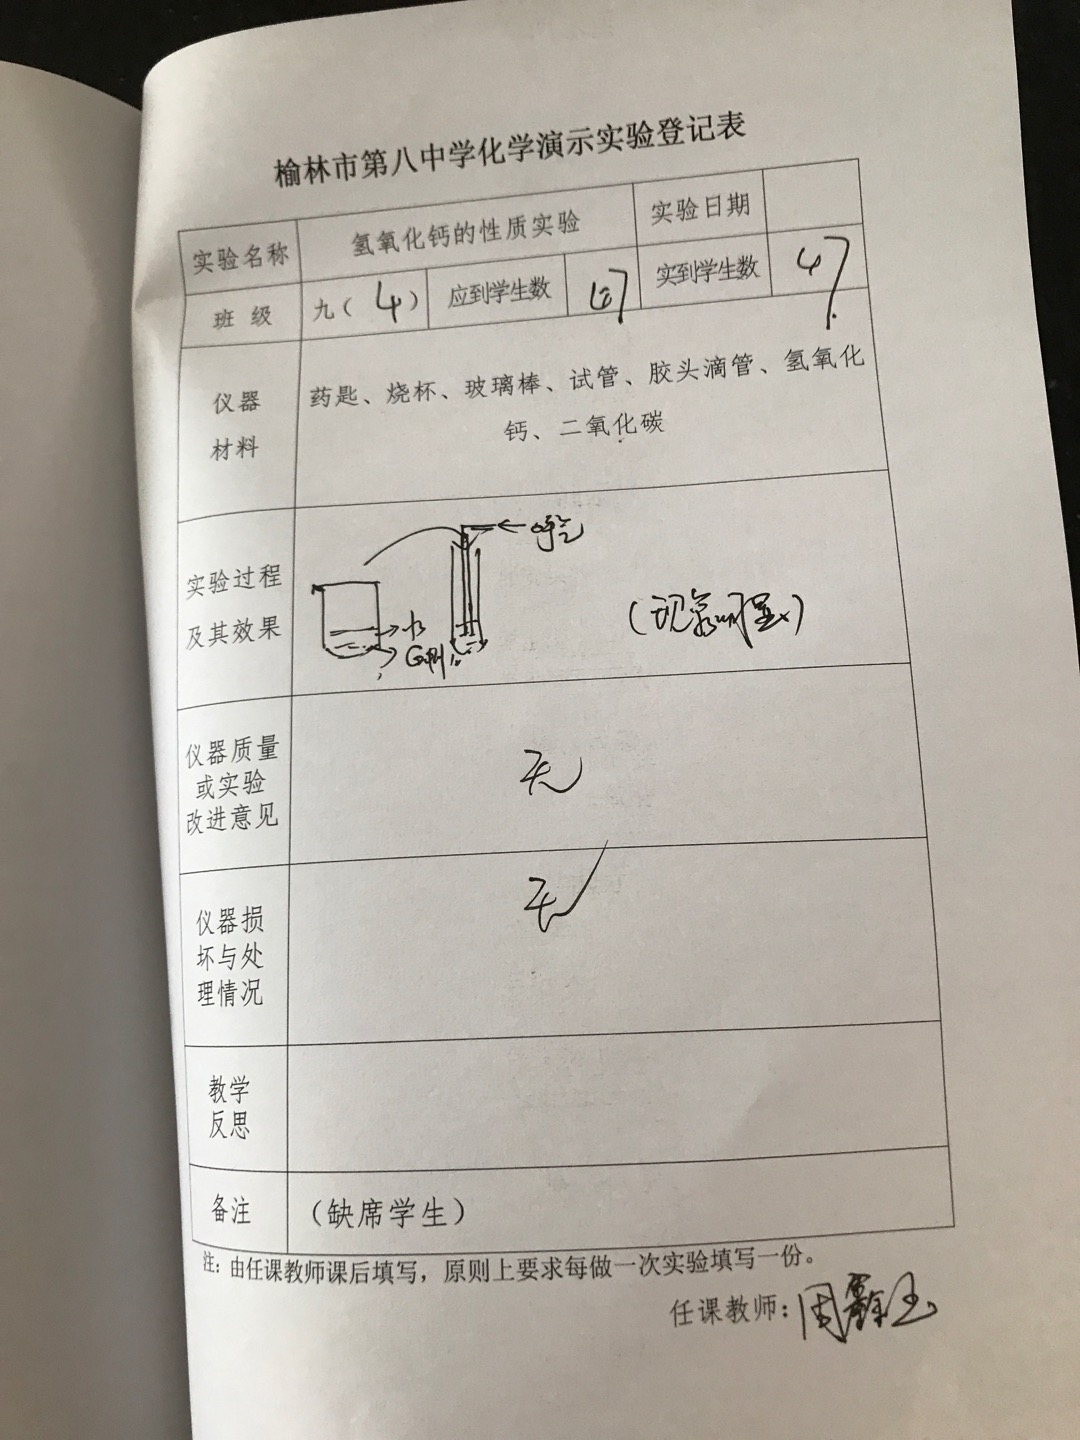 榆林市第八中学化学演示实验登记表
实验名称 氢氧化钙的性质实验 实验日期
班 级 九( 4 ) 应到学生数 实到学生数 47
仪器
材料
药匙、烧杯、玻璃棒、试管、胶头滴管、氢氧化
钙、二氧化碳
实验过程
及其效果
呼气
水
(现象明显)
仪器质量
或实验
改进意见
无
仪器损
坏与处
理情况
无
教学
反思
备注 (缺席学生)
注:由任课教师课后填写,原则上要求每做一次实验填写一份。
任课教师:周